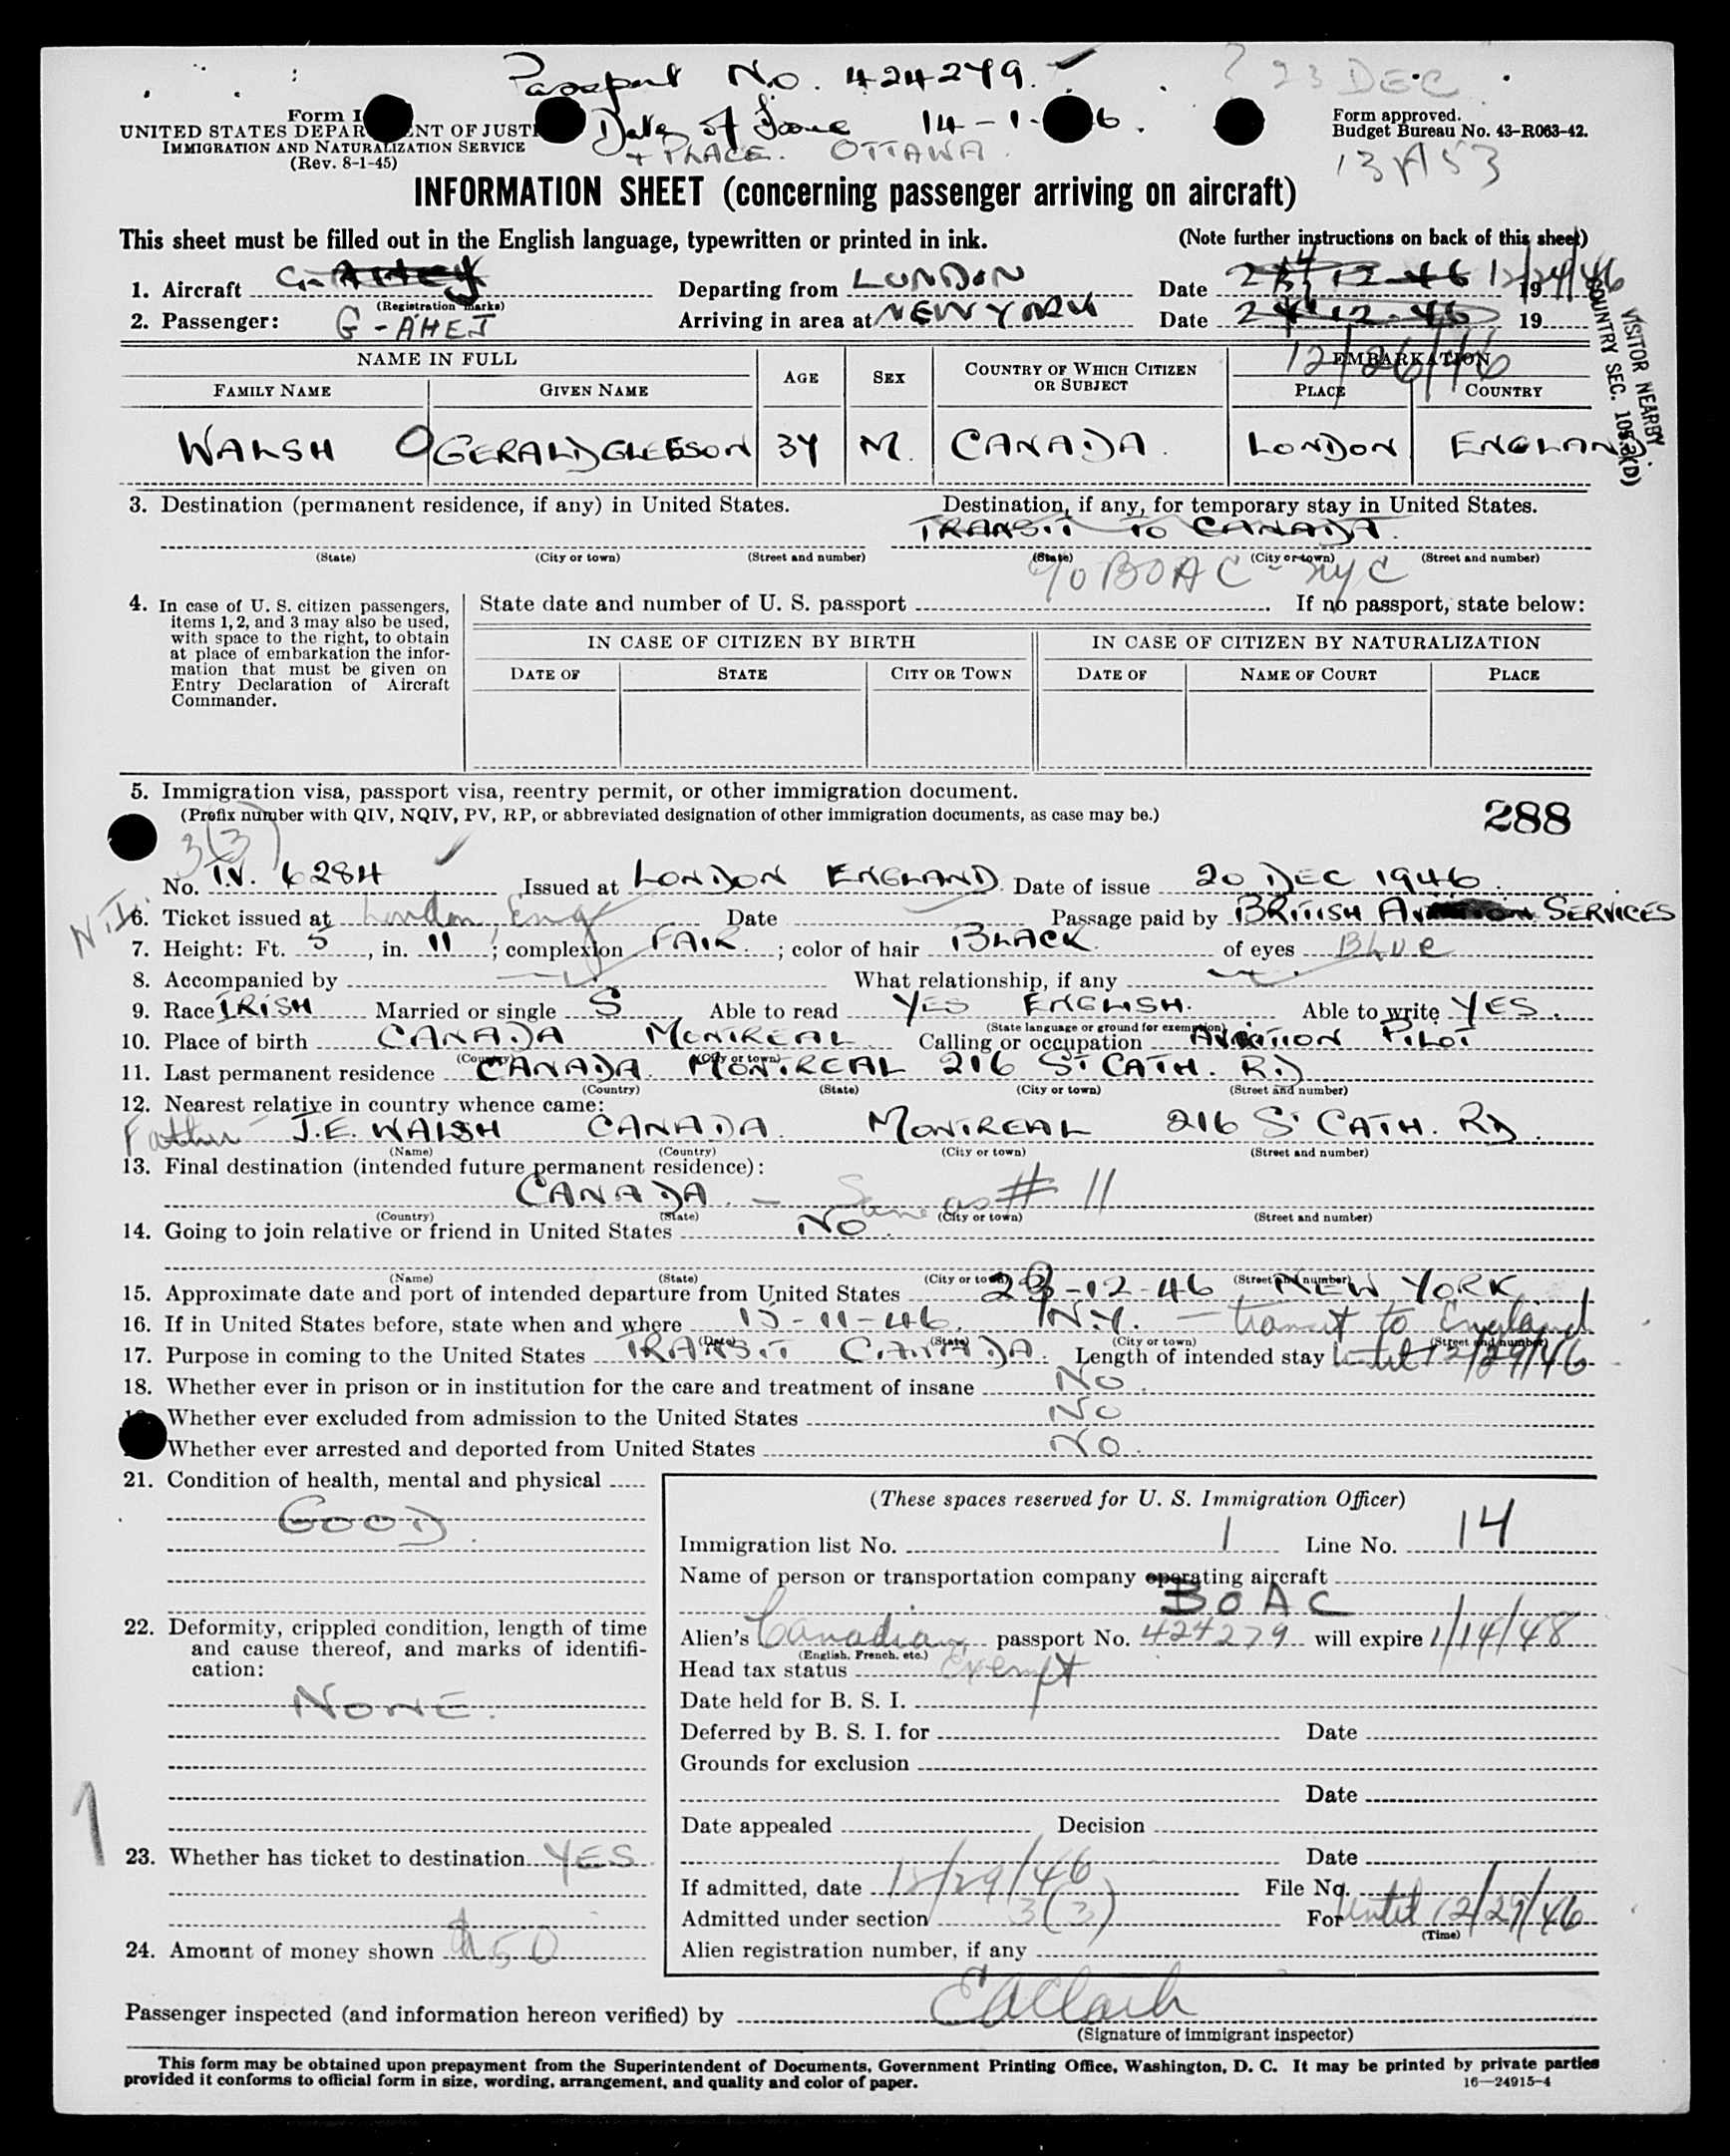 Passport No. 424279.
23 DEC
Form I
UNITED STATES DEPAR ENT OF JUSTI
IMMIGRATION AND NATURALIZATION SERVICE
(Rev. 8-1-45)
Date of Issue 14-1- 6.
+ PLACE. OTTAWA.
Form approved.
Budget Bureau No. 43-R063-42.
INFORMATION SHEET (concerning passenger arriving on aircraft)
This sheet must be filled out in the English language, typewritten or printed in ink.
(Note further instructions on back of this sheet)
1. Aircraft G-AHEJ Departing from LONDON Date 12-46 12/24/46 19
(Registration marks)
2. Passenger: G-AHEJ Arriving in area at NEW YORK Date 24-12-46 19
12/26/46
VISITOR NEARBY
COUNTRY SEC. 105.3(D)
NAME IN FULL AGE SEX COUNTRY OF WHICH CITIZEN OR SUBJECT EMBARKATION
FAMILY NAME GIVEN NAME PLACE COUNTRY
WALSH GERALD GLEESON 34 M. CANADA. LONDON ENGLAND.
3. Destination (permanent residence, if any) in United States. Destination, if any, for temporary stay in United States.
TRANSIT TO CANADA.
(State) (City or town) (Street and number) (State) (City or town) (Street and number)
c/o BOAC - NYC
4. In case of U. S. citizen passengers, items 1, 2, and 3 may also be used, with space to the right, to obtain at place of embarkation the information that must be given on Entry Declaration of Aircraft Commander.
State date and number of U. S. passport . If no passport, state below:
IN CASE OF CITIZEN BY BIRTH IN CASE OF CITIZEN BY NATURALIZATION
DATE OF STATE CITY OR TOWN DATE OF NAME OF COURT PLACE
5. Immigration visa, passport visa, reentry permit, or other immigration document.
(Prefix number with QIV, NQIV, PV, RP, or abbreviated designation of other immigration documents, as case may be.)
288
3(3)
No. T.V. 6284 Issued at LONDON ENGLAND. Date of issue 20 DEC 1946.
6. Ticket issued at London, Eng Date Passage paid by BRITISH SERVICES
7. Height: Ft. 5, in. 11; complexion FAIR.; color of hair BLACK. of eyes BLUE
8. Accompanied by — What relationship, if any —
9. Race IRISH Married or single S Able to read YES ENGLISH. Able to write YES.
(State language or ground for exemption)
10. Place of birth CANADA MONTREAL Calling or occupation AVIATION PILOT
(Country) (City or town)
11. Last permanent residence CANADA. MONTREAL 216 ST CATH. RD
(Country) (State) (City or town) (Street and number)
12. Nearest relative in country whence came:
Father J.E. WALSH CANADA. MONTREAL 216 ST CATH. RD.
(Name) (Country) (City or town) (Street and number)
13. Final destination (intended future permanent residence):
CANADA. — Same as # 11
(Country) (State) (City or town) (Street and number)
14. Going to join relative or friend in United States NO.
(Name) (State) (City or town) (Street and number)
15. Approximate date and port of intended departure from United States -12-46 NEW YORK.
16. If in United States before, state when and where 15-11-46. N.Y. — transit to England
(Date) (State) (City or town) (Street and number)
17. Purpose in coming to the United States TRANSIT CANADA. Length of intended stay until 12/29/46
18. Whether ever in prison or in institution for the care and treatment of insane NO.
Whether ever excluded from admission to the United States NO
Whether ever arrested and deported from United States NO.
21. Condition of health, mental and physical
GOOD.
22. Deformity, crippled condition, length of time and cause thereof, and marks of identification:
NONE.
23. Whether has ticket to destination YES
24. Amount of money shown $50
(These spaces reserved for U. S. Immigration Officer)
Immigration list No. 1 Line No. 14
Name of person or transportation company operating aircraft
BOAC
Alien's Canadian passport No. 424279 will expire 1/14/48
(English, French, etc.)
Head tax status Exempt
Date held for B. S. I.
Deferred by B. S. I. for Date
Grounds for exclusion
Date
Date appealed Decision
Date
If admitted, date 12/29/46 File No.
Admitted under section 3(3) For until 12/29/46
(Time)
Alien registration number, if any
Passenger inspected (and information hereon verified) by
(Signature of immigrant inspector)
This form may be obtained upon prepayment from the Superintendent of Documents, Government Printing Office, Washington, D. C. It may be printed by private parties
provided it conforms to official form in size, wording, arrangement, and quality and color of paper.
16—24915-4